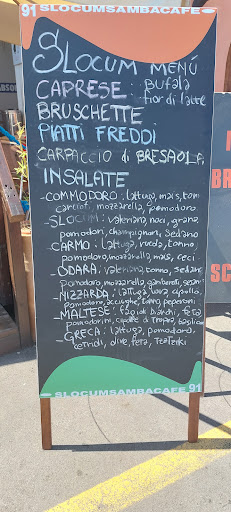 91 SLOCUMSAMBACAFE
SLOCUM MENU
CAPRESE: BUFALA
Fior di latte
BRUSCHETTE
PIATTI FREDDI
CARPACCIO di BRESAOLA
INSALATE
-COMMODORO: lattuga, mais, ton
carciof, mozzarella, pomodoro
-SLOCUM: valeriana, noci, grana
pomodori, champignons, sedano
-CARMO: lattuga, rucola, tonno,
pomodoro, mozzarella, mais, ceci
-ODARA: valeriana, tonno, sedano
pomodoro, mozzarella, gamberetti,
-NIZZARDA: lattuga, uova, cipolla
pomodoro, acciughe, tonno, peperoni
-MALTESE: fagioli bianchi, feta
pomodorini, cipolle di Tropea, basilico
-GRECA: lattuga, pomodoro,
cetrioli, olive, feta, Tzatziki
SLOCUMSAMBACAFE 91
BR
SC